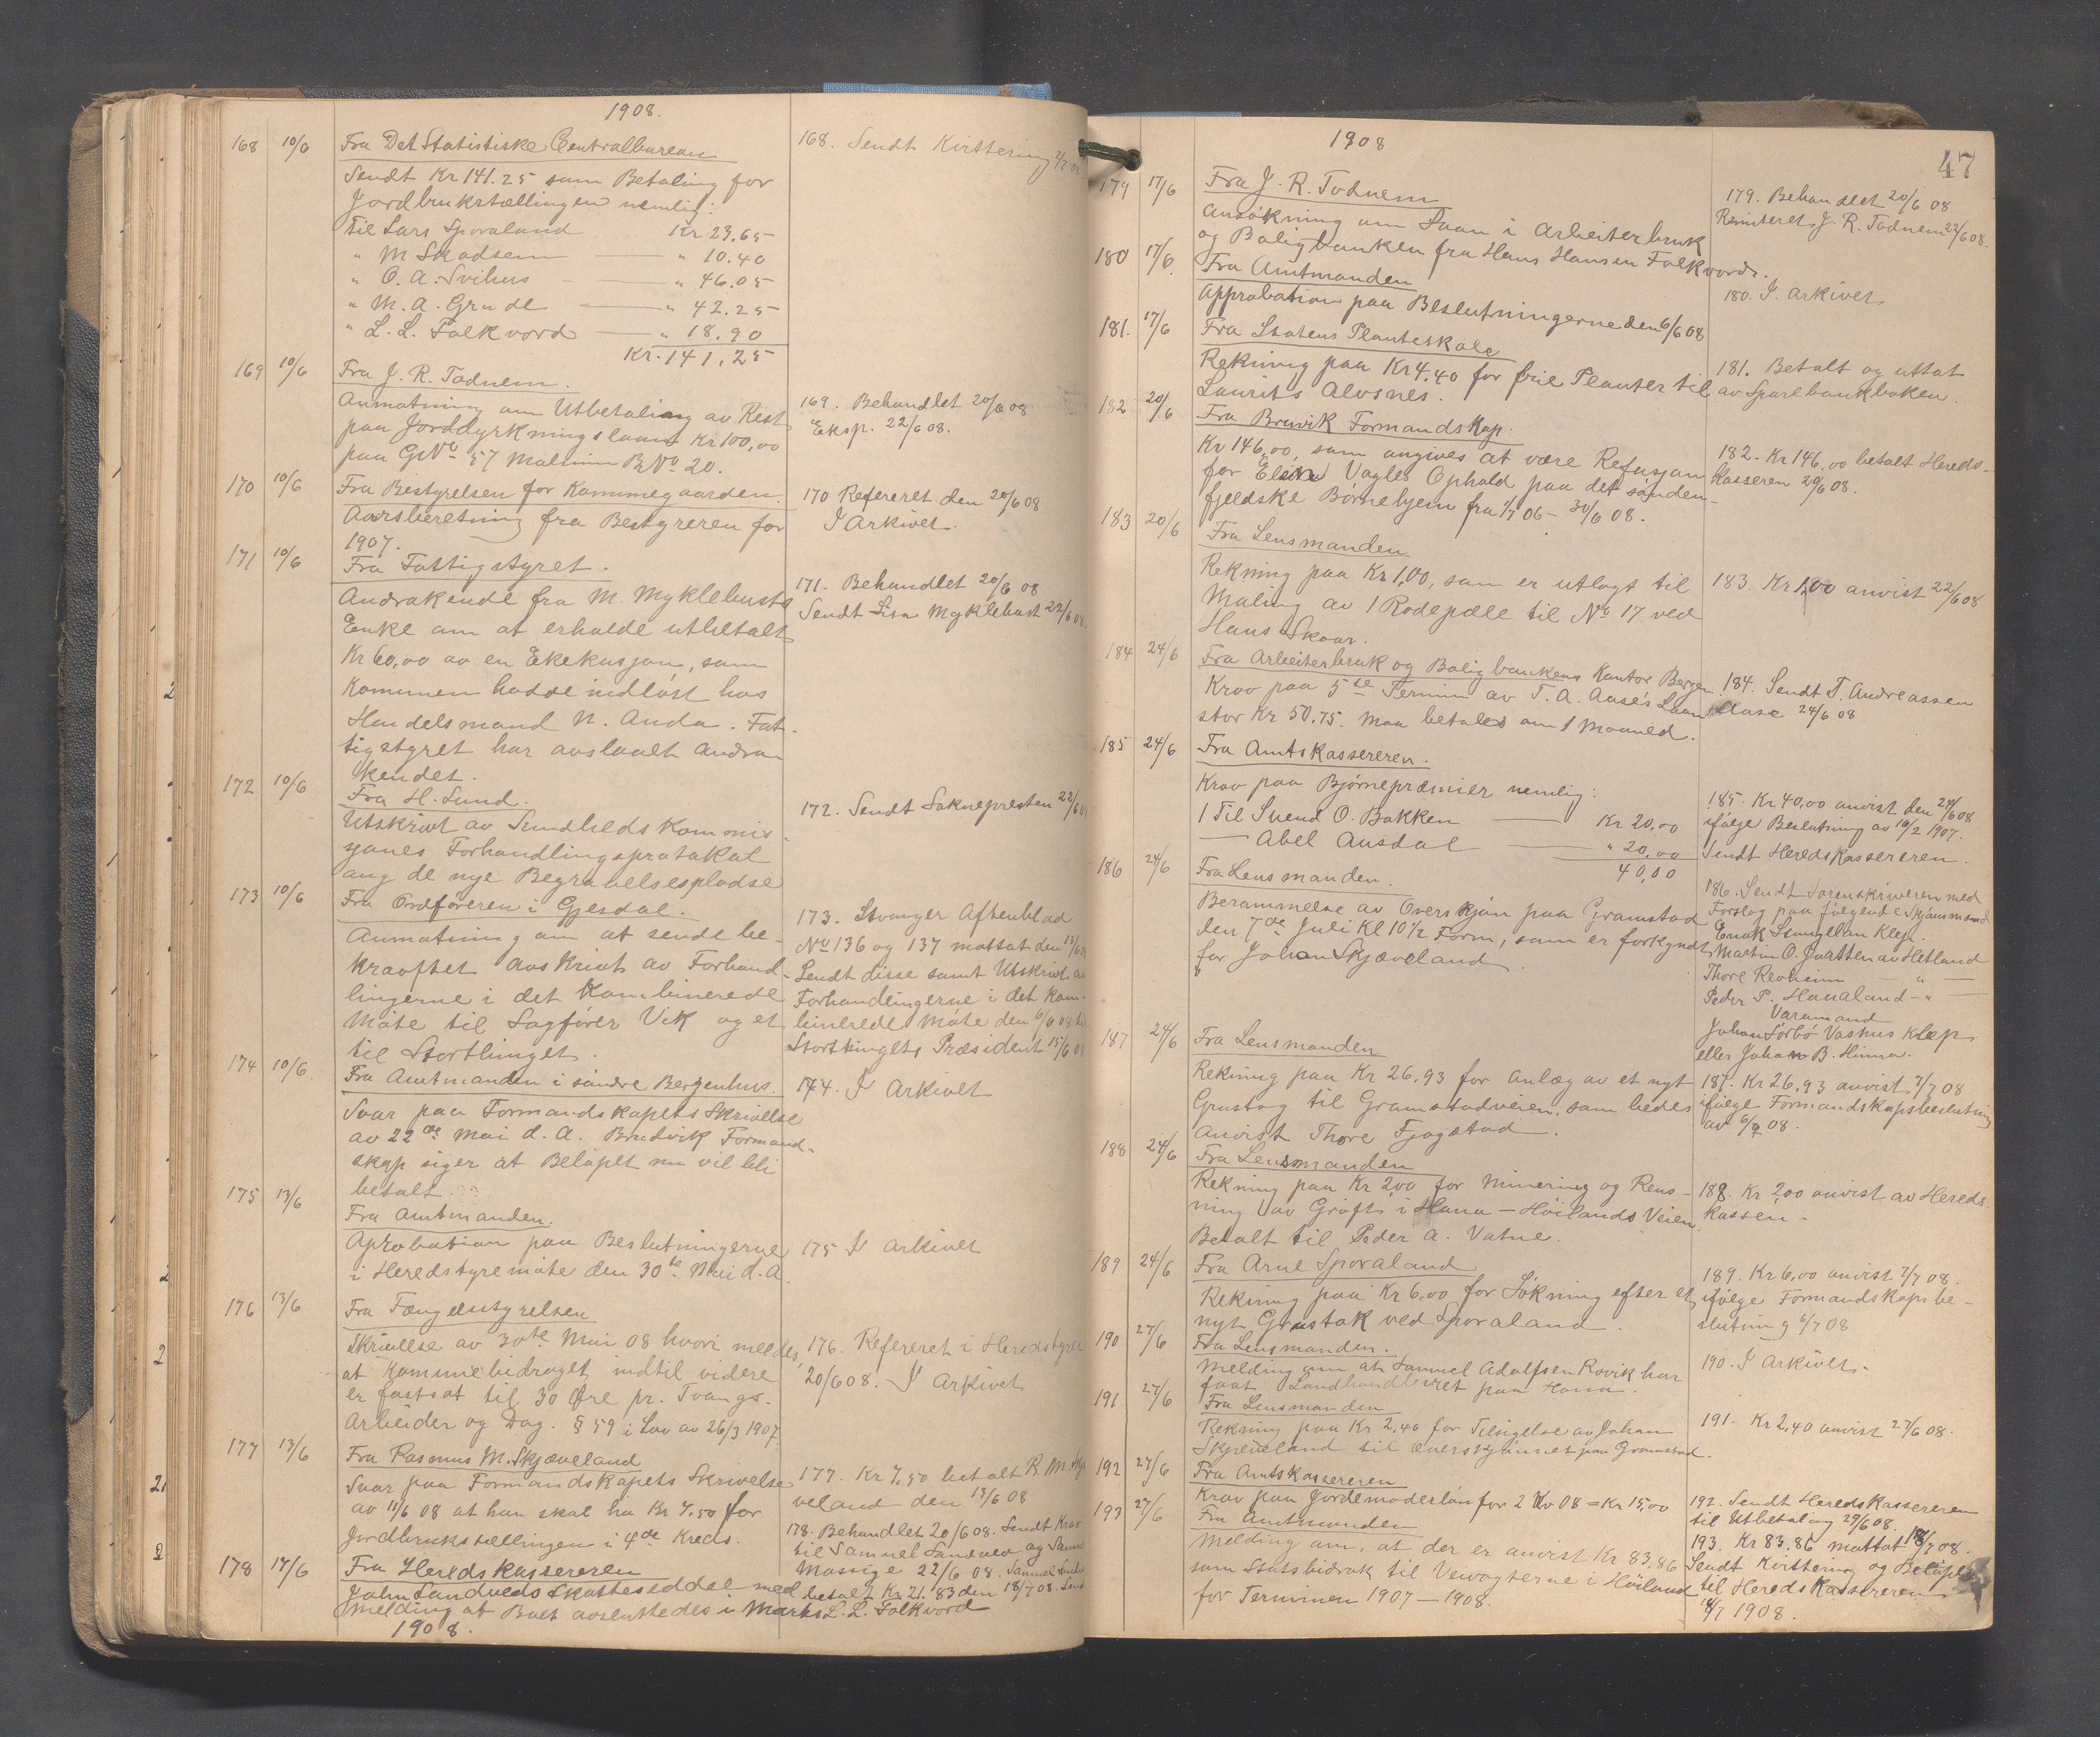 1908.
168 10/6 Fra Det Statistiske Centralbureau
Sendt Kr 141.25 som Betaling for
Jordbrukstællingen nemlig:
Til Lars Sporaland Kr 23.65
" M Skadsem " 10.40
" O. A. Svihus " 46.05
" M. A. Grude " 42.25
" L. L. Folkvord " 18.90
Kr. 141,25
168. Sendt Kvittering 2/7 08
169 10/6 Fra J. R. Todnem.
Anmotning om Utbetaling av Rest
paa Jorddyrkningslaan Kr 100,00
paa GNo 57 Malmim BNo 20.
169. Behandlet 20/6 08
Eksp. 22/6 08.
170 10/6 Fra Bestyrelsen for Kommegaarden.
Aarsberetning fra Bestyreren for
1907.
170 Refereret den 20/6 08
I Arkivet.
171 10/6 Fra Fattigstyret.
Andrakende fra M. Myklebusts
Enke om at erholde utbetalt
Kr 60,00 av en Ekekusjon, som
Kommunen hadde indløst hos
Handelsmand N. Anda. Fat-
tigstyret har avslaalt Andra-
kendet.
171. Behandlet 20/6 08
Sendt Lisa Myklebust 22/6 08.
172 10/6 Fra H. Lund.
Utskrivt av Sundhedskommis-
sjones Forhandlingsprotokol
ang de nye Begravelsesplodse
172. Sendt Sokneprosten 22/6 08
173 10/6 Fra Ordføreren i Gjesdal.
Anmotning om at sende be-
kraoftet avskrivt av Forhand-
lingerne i det Kombinerede
Møte til Sagfører Vik og et
til Stortinget.
173. Stvanger Aftenblad
No 136 og 137 mottat den 13/6 08
Sendt disse samt Utskrivt av
Forhandlingerne i det kom-
binerede Møte den 6/6 08 til
Stortingets Præsident 15/6 08
174 10/6 Fra Amtmanden i søndre Bergenhus.
Svar paa Formandskapets Skrivelse
av 22de Mai d. A. Brudvik Formand-
skap siger at Beløpet nu vil bli
betalt.
174. I Arkivet
175 13/6 Fra Amtmanden.
Aprobation paa Beslutningerne
i Heredstyremøte den 30te Mai d. A.
175 I Arkivet
176 13/6 Fra Fængelsstyrelsen
Skrivelse av 30te Mai 08 hvori meldes,
at Kommunebidraget indtil videre
er fastsat til 30 Øre pr. Tvangs-
Arbeider og Dag. § 59 i Lov av 26/3 1907.
176. Refereret i Heredstyret
20/6 08. I Arkivet
177 13/6 Fra Rasmus M. Skjæveland
Svar paa Formandskapets Skrivelse
av 11/6 08 at han skal ha Kr 7.50 for
Jordbrukstællingen i 4de Kreds.
177. Kr 7,50 betalt R. M. Skjæ
veland den 13/6 08
178 17/6 Fra Heredskassereren
John Sandveds Skatteseddel med
Melding at Boet avsluttedes i Marts
1908.
178. Behandlet 20/6 08. Sendt Krav
til Samuel Sandved og Samuel
Mossige 22/6 08. Samuel
betalt Kr 21.83 den 18/7 08. Sendt
L. L. Folkvord
1908
47
179 17/6 Fra J. R. Todnem
Ansøkning om Laan i Arbeiterbruk
og Boligbanken fra Hans Hansen Folkvord.
179. Behandlet 20/6 08
Remitteret J. R. Todnem 22/6 08.
180 17/6 Fra Amtmanden
Approbation paa Beslutningerne den 6/6 08
180. I Arkivet
181. 17/6 Fra Statens Planteskole
Rekning paa Kr 4.40 for frie Planter til
Laurits Alvsnes.
181. Betalt og uttat
av Sparebankboken.
182 20/6 Fra Bruvik Formandskap.
Kr 146,00, som angives at være Refusjon
for Eline Vagles Ophold paa det sønden-
fjeldske Børnehjem fra 1/7 06 – 30/6 08.
182. Kr 146,00 betalt Hereds-
kasseren 20/6 08.
183 20/6 Fra Lensmanden
Rekning paa Kr 1,00, som er utlagt til
Maling av 1 Rodepæle til No 17 ved
Hans Skaar.
183. Kr 1,00 anvist 22/6 08
184 24/6 Fra Arbeiterbruk og Boligbankens Kontor Bergen.
Krav paa 5te Termin av T. A. Aase's Laan
stor Kr 50.75. Maa betales om 1 Maaned.
184. Sendt T. Andreassen
Aase 24/6 08
185 24/6 Fra Amtskassereren.
Krav paa Bjørnepræmier nemlig:
1 Til Svend O. Bakken Kr 20,00
— Abel Ausdal " 20,00
40,00
185. Kr. 40,00 anvist den 24/6 08
ifølge Beslutning av 16/2 1907.
Sendt Heredskassereren.
186 24/6 Fra Lensmanden.
Berammelse av Overskjøn paa Gramstad
den 7de Juli Kl 10 1/2 Form, som er forkyndt
for Johan Skjæveland
186. Sendt Sorenskriveren med
Forslag paa følgende Skjønsmænd
Enok Stangelan Klep.
Martin O. Jaatten av Hetland
Thore Revheim — " —
Peder P. Haualand — " —
Varamand
Johan Sørbø Vashus Klep
eller Johan B. Hinna.
187 24/6 Fra Lensmanden
Rekning paa Kr 26,93 for Anlæg av et nyt
Grustag til Gramstadveien, som bedes
anvist Thore Fjogstad.
187. Kr 26,93 anvist 7/7 08
ifølge Formandskapsbeslutning
av 6/7 08.
188 24/6 Fra Lensmanden
Rekning paa Kr 2,00 for Minering og Rens-
ning av Grøft i Hana – Høilands Veien.
Betalt til Peder A. Vatne.
188. Kr 2,00 anvist av Hereds-
kassen.
189 24/6 Fra Arne Sporaland
Rekning paa Kr 6,00 for Søkning efter et
nyt Grustak ved Sporaland.
189. Kr 6,00 anvist 7/7 08.
ifølge Formandskapsbe-
slutning 6/7 08
190 27/6 Fra Lensmanden.
Melding om at Samuel Adolfsen Rovik har
faat Landhandlerret paa Hana.
190. I Arkivet.
191 27/6 Fra Lensmanden
Rekning paa Kr 2,40 for Tilsigelse av Johan
Skjæveland til Overskjønnet paa Gramstad.
191. Kr 2,40 anvist 27/6 08.
192 27/6 Fra Amtskassereren
Krav paa Jordemoderløn for 2 Kv 08 = Kr 15,00
192. Sendt Heredskassereren
til Utbetaling 29/6 08.
193 27/6 Fra Amtmanden
Melding om, at der er anvist Kr 83,86
som Statsbidrak til Veivogterne i Høiland
for Terminen 1907 – 1908.
193. Kr 83.86 mottat 18/7 08.
Sendt Kvittering og Beløpet
til Heredskassereren
18/7 1908.